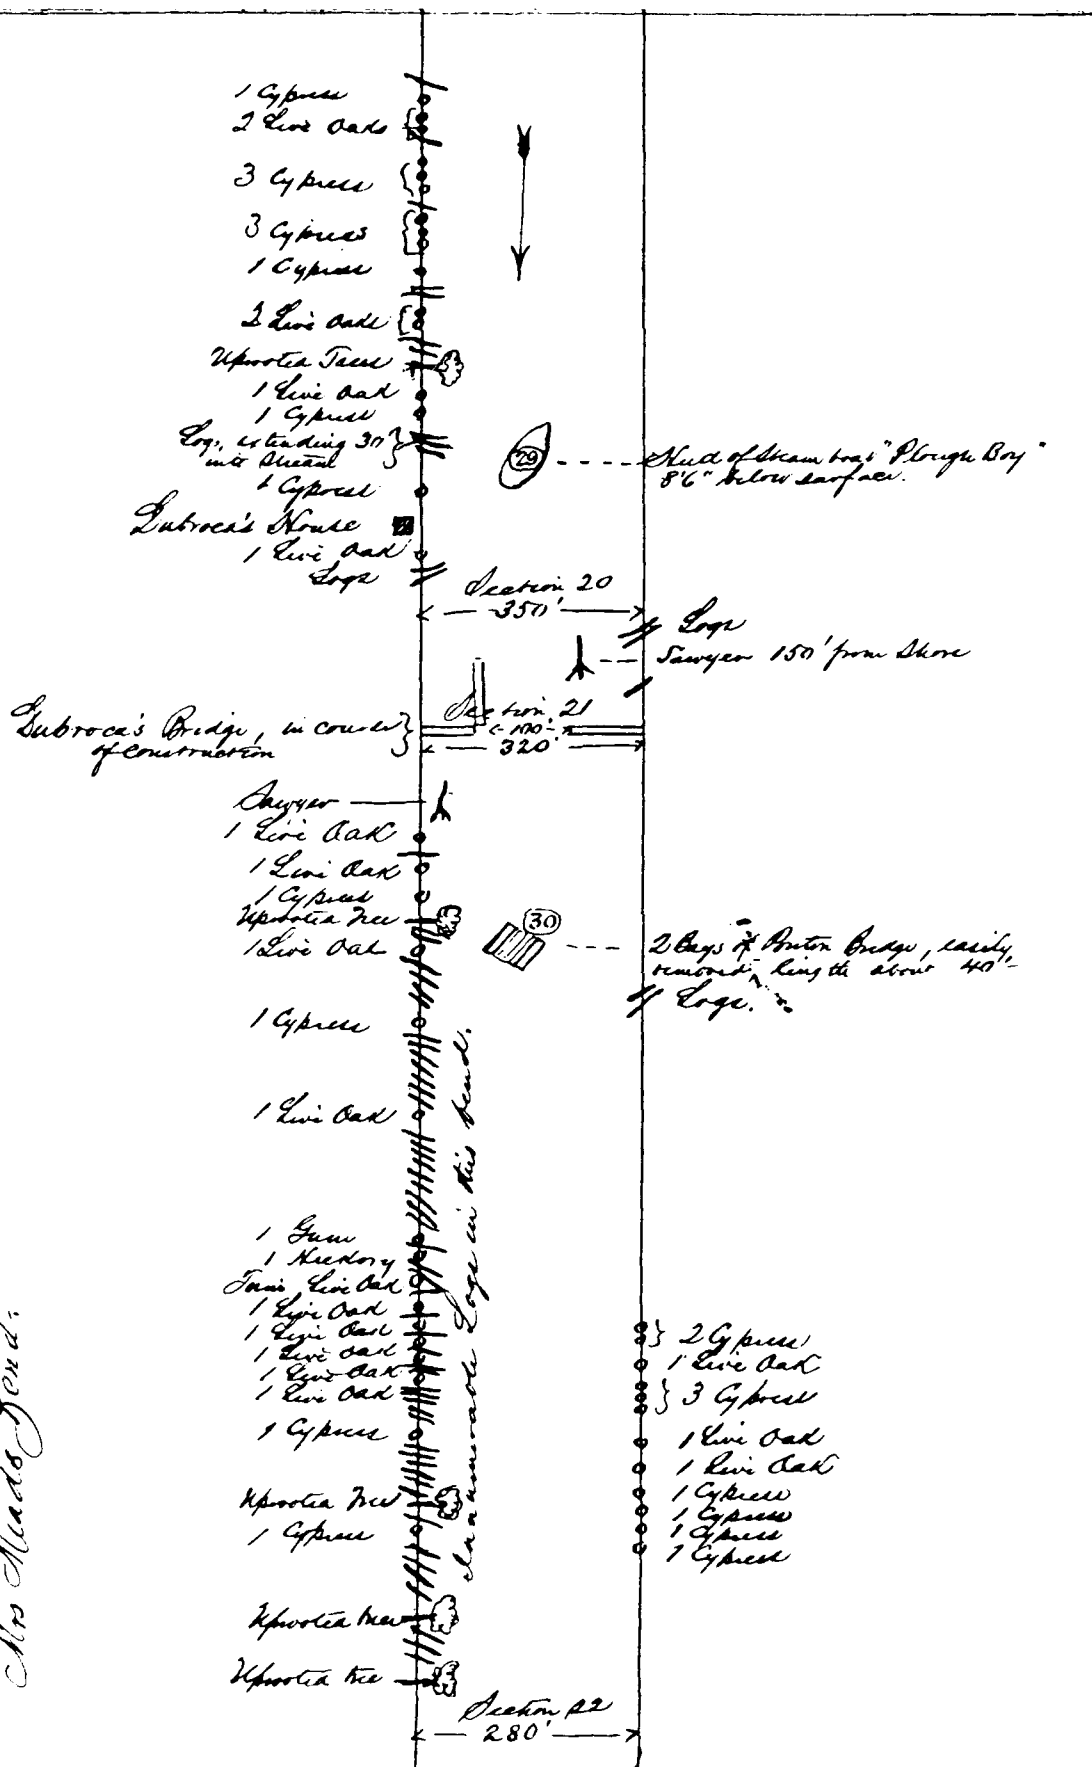 1 Cypress
2 Live Oaks
3 Cypress
3 Cypress
1 Cypress
2 Live Oaks
Uprooted Trees
1 Live Oak
1 Cypress
Logs, extending 30'
into Stream
29
Hud of Steam boat "Plough Boy"
8'6" below surface.
1 Cypress
Dubroca's House
1 Live Oak
Logs
Section 20
350'
Logs
Sawyer 150' from Shore
Dubroca's Bridge, in course
of Construction
Section 21
100
320'
Sawyer
1 Live Oak
1 Live Oak
1 Cypress
Uprooted Tree
1 Live Oak
30
2 Bays of Ponton Bridge, easily
removed, length about 40'
Logs.
1 Cypress
1 Live Oak
Innumerable Logs in this bend.
1 Gum
1 Hickory
Twin Live Oak
1 Live Oak
1 Live Oak
1 Live Oak
1 Live Oak
1 Live Oak
1 Cypress
Uprooted Tree
1 Cypress
Uprooted tree
Uprooted tree
2 Cypress
1 Live Oak
3 Cypress
1 Live Oak
1 Live Oak
1 Cypress
1 Cypress
1 Cypress
1 Cypress
Mrs Meads Bend.
Section 22
280'